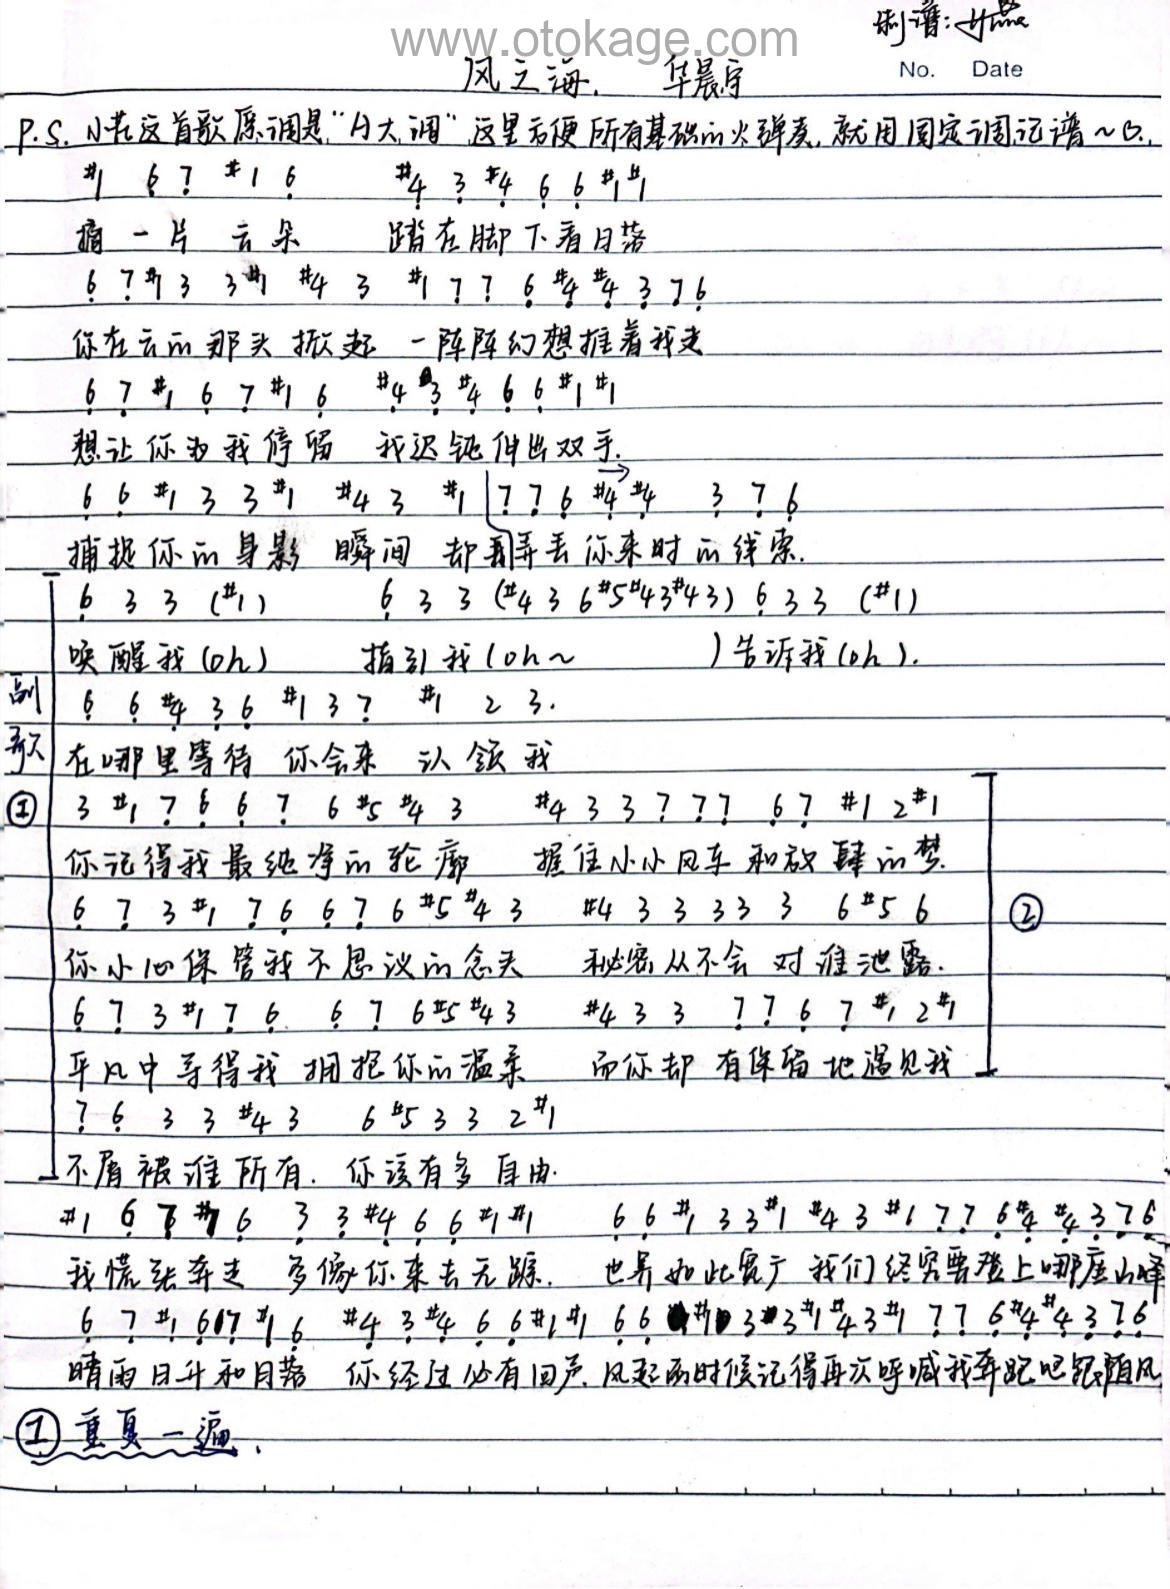 www.otokage.com
制谱:
No. Date
风之海. 华晨宇
P.S. 小花这首歌原调是"A大调"这里方便所有基础的火弹奏,就用固定调记谱~
#1 6 7 #1 6 #4 3 #4 6 6 #1 #1
摘一片云朵 踏在脚下看日落
6 7 #1 3 3 #1 #4 3 #1 7 7 6 #4 #4 3 7 6
你在云的那头掀起 一阵阵幻想推着我走
6 7 #1 6 7 #1 6 #4 3 #4 6 6 #1 #1
想让你为我停留 我迟钝伸出双手.
6 6 #1 3 3 #1 #4 3 #1 7 7 6 #4 #4 3 7 6
捕捉你的身影 瞬间 却弄丢你来时的线索.
6 3 3 (#1) 6 3 3 (#4 3 6 #5 #4 3 #4 3) 6 3 3 (#1)
唤醒我(oh) 指引我(oh~ )告诉我(oh).
副歌①
6 6 #4 3 6 #1 3 7 #1 2 3.
在哪里等待 你会来 认领我
3 #1 7 6 6 7 6 #5 #4 3 #4 3 3 7 7 7 6 7 #1 2 #1
你记得我最纯净的轮廓 握住小小风车和放肆的梦.
6 7 3 #1 7 6 6 7 6 #5 #4 3 #4 3 3 3 3 3 6 #5 6
②
你小心保管我不思议的念头 秘密从不会对谁泄露.
6 7 3 #1 7 6 6 7 6 #5 #4 3 #4 3 3 7 7 6 7 #1 2 #1
平凡中寻得我拥抱你的温柔 而你却有保留地遇见我
7 6 3 3 #4 3 6 #5 3 3 2 #1
不屑被谁所有. 你该有多自由.
#1 6 7 #1 6 3 3 #4 6 6 #1 #1 6 6 #1 3 3 #1 #4 3 #1 7 7 6 #4 #4 3 7 6
我慌张奔走 多像你来去无踪. 世界如此宽广 我们终究要登上哪座山峰
6 7 #1 6 7 #1 6 #4 3 #4 6 6 #1 #1 6 6 #1 3 3 #1 #4 3 #1 7 7 6 #4 #4 3 7 6
晴雨日升和月落 你经过必有回声.风起的时候记得再次呼喊我奔跑吧跟随风
① 重复一遍.